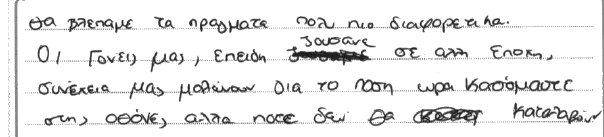 θα βλεπαμε τα πραγματα πολυ πιο διαφορετικα.
Οι Γονεις μας, επειδη ζουσανε σε αλλη εποχη,
συνεχεια μας μαλωναν δια το ποση ωρα καθομαστε
στης οθονες αλλα ποτε δεν θα καταλαβουν